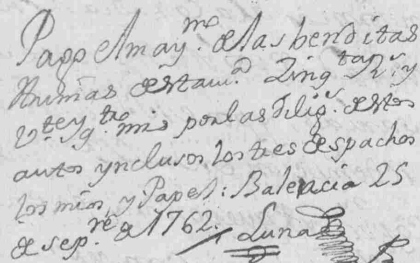 Pago el may.mo de las benditas
Animas de esta v.a Zinq.ta R.s y
v.te y q.tro mrs por las dilig.s de estos
autos ynclusos los tres despachos
los mios, y Papel: Balencia 25
de sep.re de 1762. Luna